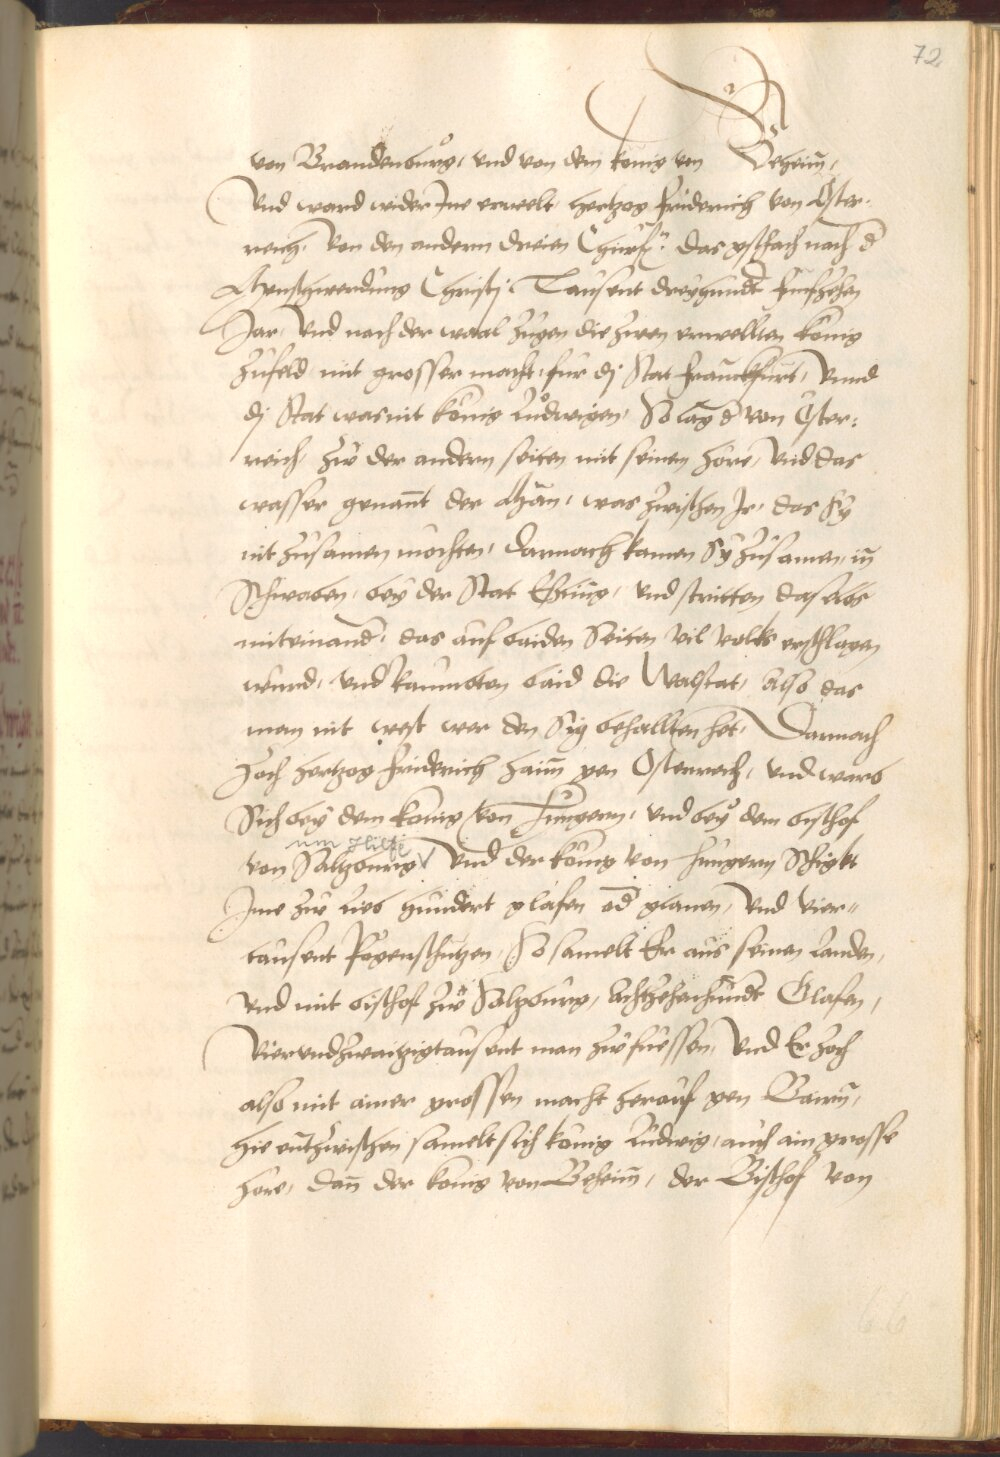 72
von Brandenburg, vnd von dem konig von Beheim,
Vnd ward wider Ine erwelt hertzog friderich von Oster-
reich, von den anderm dreien Churf: das gschach nach d
Menschwerdung Christj Tausent dreyhundt funfzehen
Jar, Vnd nach der waal zugen die zwen erwellten konig
zufeld mit grosser macht, fur dj Stat franckfurt, Vnnd
dj Stat was mit konig Ludwigen, So lag d von Oster:
reich zw der andern seiten mit seinen hore, Vnd das
wasser genant der Main, was zwischen Ir, das Sy
nit zusamen mochten, Darnach kamen Sy zusamen, in
Schwaben, bey der Stat Essling, vnd stritten daselbs
miteinand, das auf baiden Seiten vil volks erschlagen
wurd, vnd raumbten baid die Walstat, Also das
man nit west wer den Sig behallten het, Darnach
zoch hertzog friderich haim gen Osterrech, vnd warb
Sich bey dem konig von Hungern, vnd bey dem bischof
um Hilfe
von Saltzburg Vnd der konig von hungern Schigkt
Ime zw lieb hundert glafen od glanen, Vnd vier-
tausent Pogenschutzen, So samelt Er aus seinen landen,
vnd mit bischof zw Saltzburg, Achtzehenhundt Glafen,
Vierundzwaitzigtausent man zw fuessen, Vnd Er zoch
also mit ainer grossen macht herauf gen Bairn,
hie entzwischen samelt sich konig Ludwig, auch ain grosse
hore, Dan der konig von Beheim, der Bischof von
66